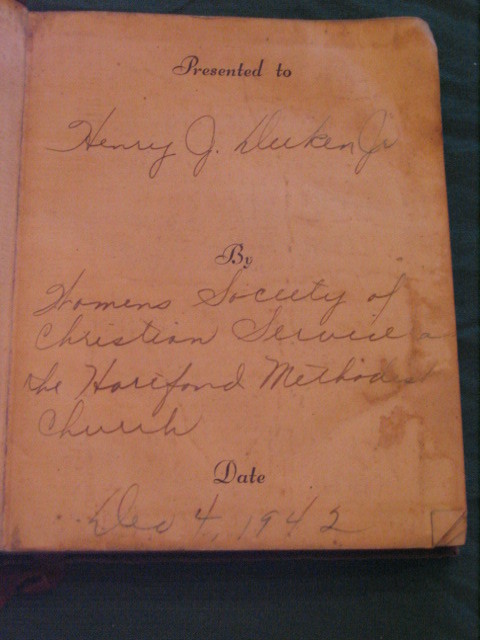 Presented to
Henry J. Deeken Jr
By
Womens Society of
Christian Service
The Hartford Methodist
Church
Date
Dec 4, 1942